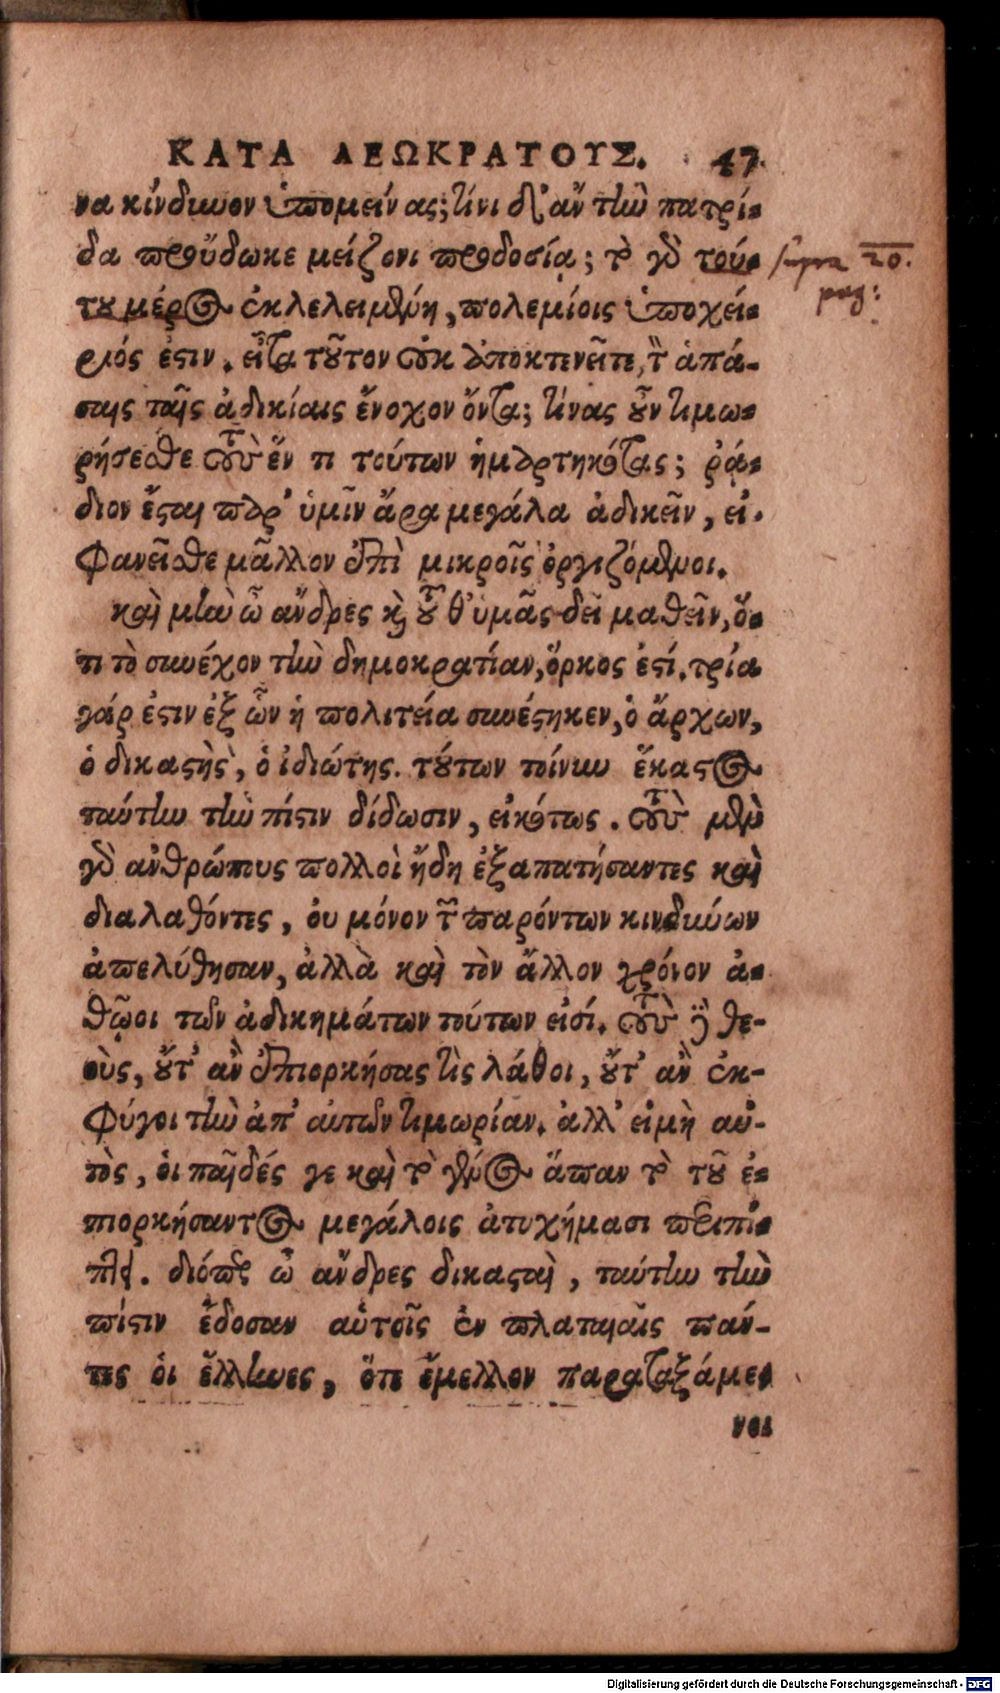 ΚΑΤΑ ΛΕΩΚΡΑΤΟΥΣ. 47.
να κίνδυνον ὑπομείνας; τίνι δ' ἂν τὴν πατρί-
δα προὔδωκε μείζονι προδοσίᾳ; τὸ γὰρ τού-
του μέρος ἐκλελειμμένη, πολεμίοις ὑποχεί-
ριός ἐστιν. εἶτα τοῦτον οὐκ ἀποκτενεῖτε, τὸν ἁπά-
σαις ταῖς ἀδικίαις ἔνοχον ὄντα; τίνας οὖν τιμω-
ρήσεσθε τοὺς ἕν τι τούτων ἡμαρτηκότας; ῥᾴ-
διον ἔσται παρ' ὑμῖν ἄρα μεγάλα ἀδικεῖν, εἰ
φανεῖσθε μᾶλλον ἐπὶ μικροῖς ὀργιζόμενοι.
καὶ μὴν ὦ ἄνδρες καὶ τοῦθ' ὑμᾶς δεῖ μαθεῖν, ὅ-
τι τὸ συνέχον τὴν δημοκρατίαν, ὅρκος ἐστί. τρία
γάρ ἐστιν ἐξ ὧν ἡ πολιτεία συνέστηκεν, ὁ ἄρχων,
ὁ δικαστὴς, ὁ ἰδιώτης. τούτων τοίνυν ἕκαστος
ταύτην τὴν πίστιν δίδωσιν, εἰκότως. τοὺς μὲν
γὰρ ἀνθρώπους πολλοὶ ἤδη ἐξαπατήσαντες καὶ
διαλαθόντες, οὐ μόνον τῶν παρόντων κινδύνων
ἀπελύθησαν, ἀλλὰ καὶ τὸν ἄλλον χρόνον ἀ-
θῷοι τῶν ἀδικημάτων τούτων εἰσί. τοὺς δὲ θε-
οὺς, οὔτ' ἂν ἐπιορκήσας τὶς λάθοι, οὔτ' ἂν ἐκ-
φύγοι τὴν ἀπ' αὐτῶν τιμωρίαν. ἀλλ' εἰ μὴ αὐ-
τὸς, οἱ παῖδές γε καὶ τὸ γένος ἅπαν τὸ τοῦ ἐ-
πιορκήσαντος μεγάλοις ἀτυχήμασι περιπί-
πτει. διόπερ ὦ ἄνδρες δικασταὶ, ταύτην τὴν
πίστιν ἔδοσαν αὑτοῖς ἐν πλαταιαῖς πάν-
τες οἱ ἕλληνες, ὅτε ἔμελλον παραταξάμε-
νοι
supra 20.
pag:
Digitalisierung gefördert durch die Deutsche Forschungsgemeinschaft - DFG